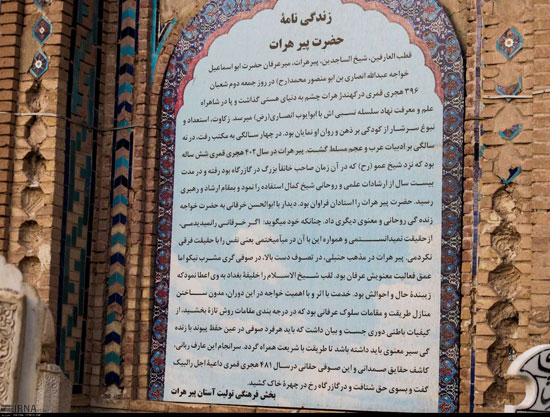 زندگی نامهٔ
حضرت پیر هرات
قطب العارفین، شیخ الساجدین، پیرهرات، میرعرفان حضرت ابو اسماعیل
خواجه عبدالله انصاری بن ابو منصور محمد(رح) در روز جمعه دوم شعبان
۳۹۶ هجری قمری در کهندژ هرات چشم به دنیای هستی گذاشت و پا در شاهراه
علم و معرفت نهاد سلسله نسبی اش با ابوایوب انصاری(رض) میرسد. زکاوت، استعداد و
نبوغ سرشار از کودکی بر ذهن و روان او نمایان بود. در چهار سالگی به مکتب رفت، در نه
سالگی بر ادبیات عرب و عجم مسلط گشت. پیر هرات در سال ۴۰۲ هجری قمری شش ساله
بود که نزد شیخ عمو (رح) که در آن زمان صاحب خانقاٰ بزرگ در گازرگاه بود رفته و در مدت
بیست سال از ارشادات علمی و روحانی شیخ کمال استفاده را نمود و بمقام ارشاد و رهبری
رسید. حضرت پیر هرات را استادان فراوان بود. دیدار با ابوالحسن خرقانی به حضرت خواجه
زنده گی روحانی و معنوی دیگری داد. چنانکه خود میگوید: اگر خرقانی رانمیدیدمی،
از حقیقت نمیدانستمی و همواره این با آن در میآمیختمی یعنی نفس را با حقیقت فرقی
نکردمی. پیر هرات در مذهب حنبلی، در تصوف دست بالا، در صوفی گری مشرب نیکو اما
عمق فعالیت معنویش عرفان بود. لقب شیخ الاسلام را خلیفهٔ بغداد به وی اعطا نمود که
زیبندهٔ حال و احوالش بود. خدمت با اثر و با اهمیت خواجه در این دوران، مدون ساختن
منازل طریقت و مقامات سلوک عرفانی بود که در درجه بندی مقامات روش تازهٔ بخشید، از
کیفیات باطنی دوری جست و بیان داشت که باید هرفرد صوفی در عین حفظ پیوند با زنده
گی سیر معنوی باید داشته باشد تا طریقت با شریعت همراه گردد. سرانجام این عارف ربانی،
کاشف حقایق صمدانی و این صوفی حقانی درسال ۴۸۱ هجری قمری داعیهٔ اجل رالبیک
گفت و بسوی حق شتافت و در گازرگاه رخ در چهرهٔ خاک کشید.
بخش فرهنگی تولیت آستان پیر هرات
IRNA